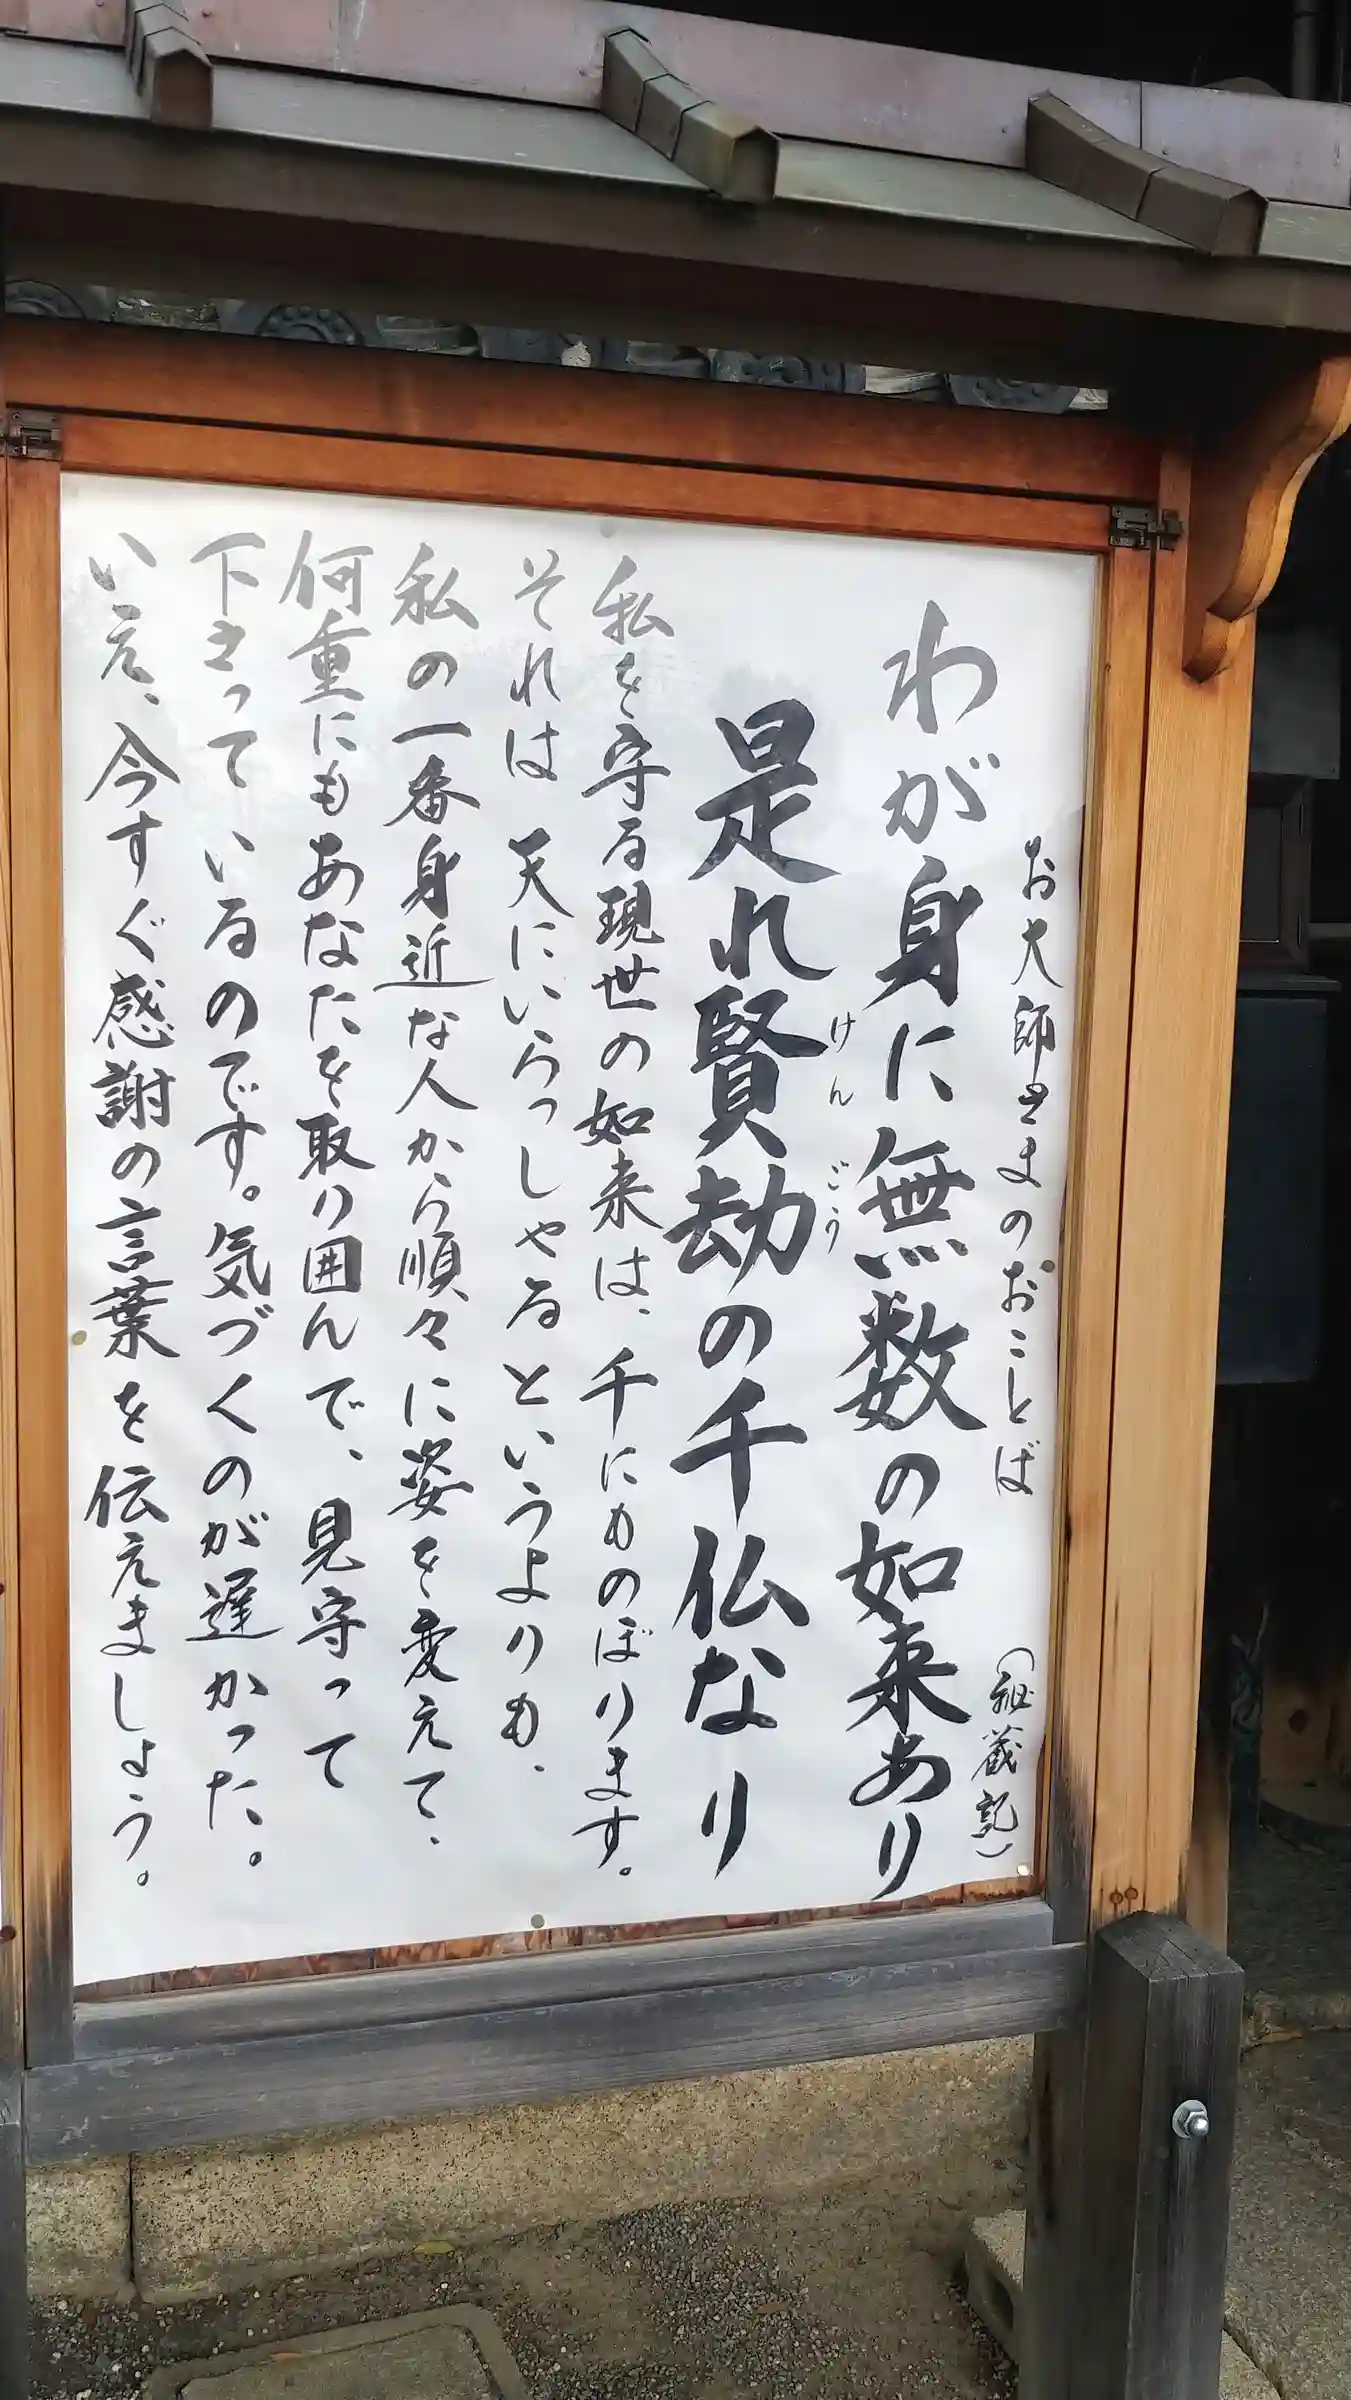 お大師さまのおことば（秘蔵記）
わが身に無数の如来あり
是れ賢劫の千仏なり
けんごう
私を守る現世の如来は、千にものぼります。
それは天にいらっしゃるというよりも、
私の一番身近な人から順々に姿を変えて、
何重にもあなたを取り囲んで、見守って
下さっているのです。気づくのが遅かった。
いえ、今すぐ感謝の言葉を伝えましょう。